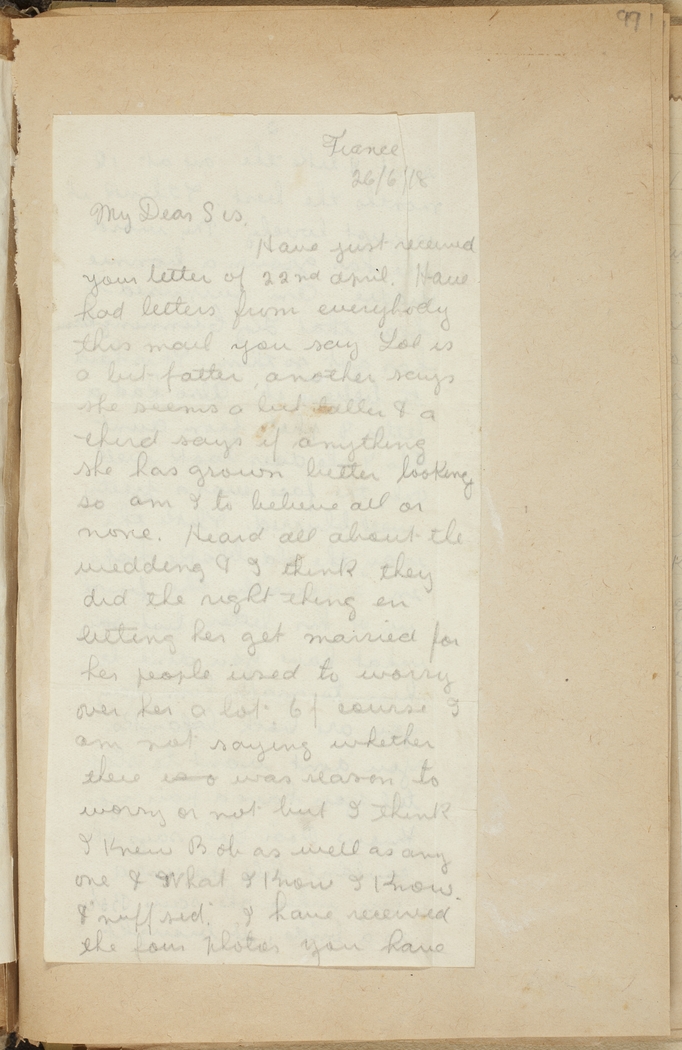 99
France
26/6/18
My Dear Sis,
Have just received
your letter of 22nd april. Have
had letters from everybody
this mail you say Lol is
a bit fatter, another says
she seems a bit taller & a
third says if anything
she has grown better looking
so am I to believe all or
none. Heard all about the
wedding & I think they
did the right thing in
letting her get married for
her people used to worry
over her a lot. Of course I
am not saying whether
there was reason to
worry or not but I think
I knew Bob as well as any
one & What I Know I Know
& nuff sed. I have received
the four photos you have